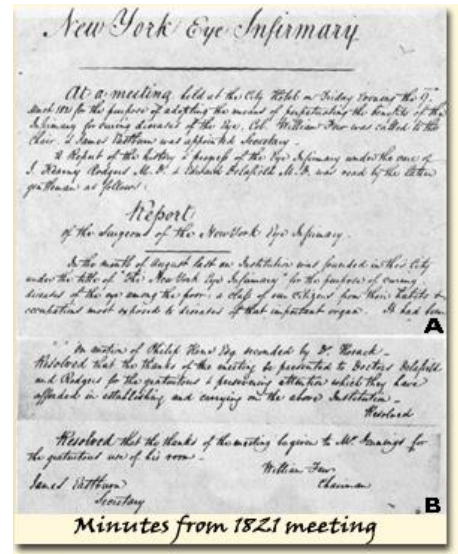 New York Eye Infirmary
At a meeting held at the City Hotel on Friday Evening the 9th
March 1821 for the purpose of adopting the means of perpetuating the benefits of the
Infirmary for curing diseases of the Eye, Col. William Few was called to the
Chair & James Eastburn was appointed Secretary.
A Report of the history & progress of the Eye Infirmary under the care of
J. Kearny Rodgers M.D. & Edward Delafield M.D. was read by the latter
gentleman as follows:
Report
of the Surgeons of the New York Eye Infirmary.
In the month of August last an Institution was founded in this City
under the title of "The New York Eye Infirmary" for the purpose of curing
diseases of the eye among the poor: a class of our Citizens from their habits &
occupations most exposed to diseases of that important organ. It had been
A
On motion of Philip Hone Esq. seconded by Dr. Hosack
Resolved that the thanks of the meeting be presented to Doctors Delafield
and Rodgers for the gratuitous & persevering attention which they have
afforded in establishing and carrying on the above Institution.
Resolved
Resolved that the thanks of the meeting be given to Mr. Jennings for
the gratuitous use of his room.
William Few
James Eastburn Chairman
Secretary
B
Minutes from 1821 meeting